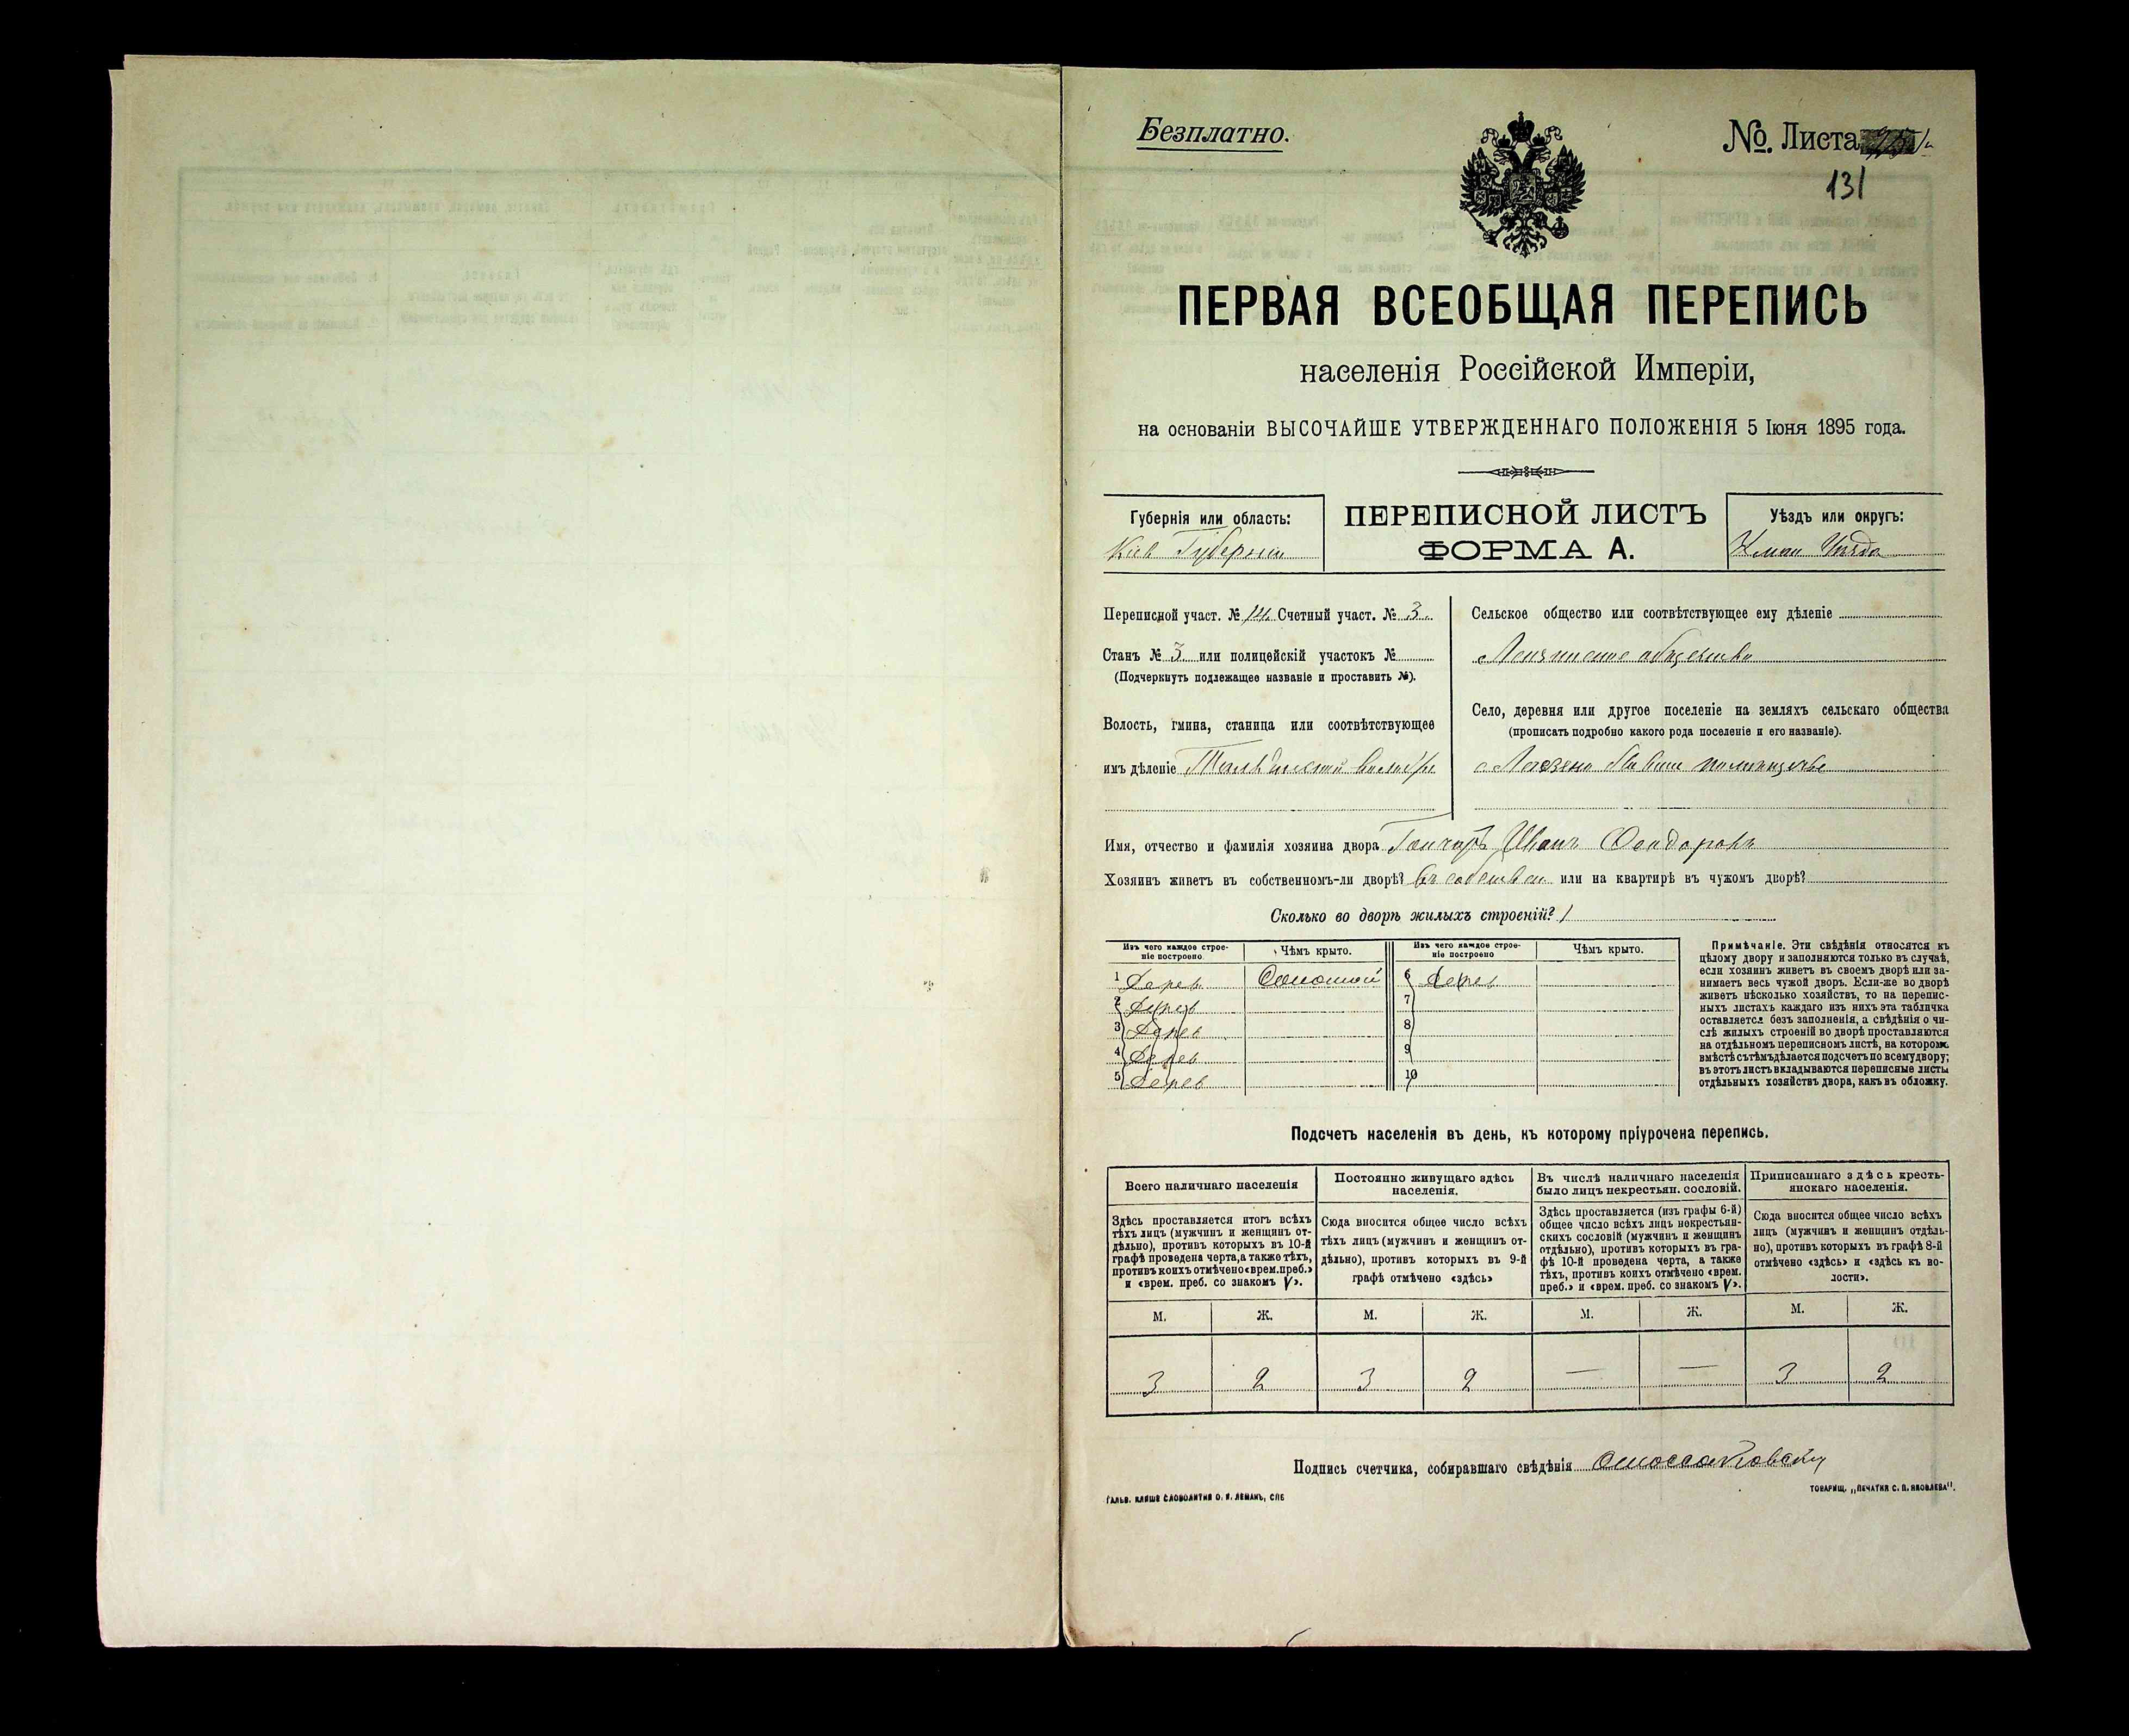 Безплатно.
№. Листа
131
ПЕРВАЯ ВСЕОБЩАЯ ПЕРЕПИСЬ
населенія Россійской Имперіи,
на основаніи ВЫСОЧАЙШЕ УТВЕРЖДЕННАГО ПОЛОЖЕНІЯ 5 Іюня 1895 года.
Губернія или область:
Кіев Губерніи
ПЕРЕПИСНОЙ ЛИСТЪ
ФОРМА А.
Уѣздъ или округъ:
Уман Уѣзда
Переписной участ. № 14 Счетный участ. № 3
Станъ № 3 или полицейскій участокъ №
(Подчеркнуть подлежащее названіе и проставить №).
Волость, гмина, станица или соотвѣтствующее
имъ дѣленіе
Сельское общество или соотвѣтствующее ему дѣленіе
общество
Село, деревня или другое поселеніе на земляхъ сельскаго общества
(прописать подробно какого рода поселеніе и его названіе).
Имя, отчество и фамилія хозяина двора Гончаръ Иванъ Феодоровъ
Хозяинъ живетъ въ собственномъ-ли дворѣ? въ собствен или на квартирѣ въ чужомъ дворѣ?
Сколько во дворѣ жилыхъ строеній? 1
Изъ чего каждое строе-
ніе построено
Чѣмъ крыто.
Изъ чего каждое строе-
ніе построено
Чѣмъ крыто.
1 Дерев Соломой 6 Дерев
2 Дерев 7
3 Дерев 8
4 Дерев 9
5 Дерев 10
Примѣчаніе. Эти свѣдѣнія относятся къ
цѣлому двору и заполняются только въ случаѣ,
если хозяинъ живетъ въ своемъ дворѣ или за-
нимаетъ весь чужой дворъ. Если-же во дворѣ
живетъ нѣсколько хозяйствъ, то на перепис-
ныхъ листахъ каждаго изъ нихъ эта табличка
оставляется безъ заполненія, а свѣдѣнія о чи-
слѣ жилыхъ строеній во дворѣ проставляются
на отдѣльномъ переписномъ листѣ, на которомъ
вмѣстѣ съ тѣмъ дѣлается подсчетъ по всему двору;
въ этотъ листъ вкладываются переписные листы
отдѣльныхъ хозяйствъ двора, какъ въ обложку.
Подсчетъ населенія въ день, къ которому пріурочена перепись.
Всего наличнаго населенія
Постоянно живущаго здѣсь
населенія.
Въ числѣ наличнаго населенія
было лицъ некрестьян. сословій.
Приписаннаго здѣсь кресть-
янскаго населенія.
Здѣсь проставляется итогъ всѣхъ
тѣхъ лицъ (мужчинъ и женщинъ от-
дѣльно), противъ которыхъ въ 10-й
графѣ проведена черта, а также тѣхъ,
противъ коихъ отмѣчено «врем. преб.»
и «врем. преб. со знакомъ V».
Сюда вносится общее число всѣхъ
тѣхъ лицъ (мужчинъ и женщинъ от-
дѣльно), противъ которыхъ въ 9-й
графѣ отмѣчено «здѣсь»
Здѣсь проставляется (изъ графы 6-й)
общее число всѣхъ лицъ некрестьян-
скихъ сословій (мужчинъ и женщинъ
отдѣльно), противъ которыхъ въ гра-
фѣ 10-й проведена черта, а также
тѣхъ, противъ коихъ отмѣчено «врем.
преб.» и «врем. преб. со знакомъ V».
Сюда вносится общее число всѣхъ
лицъ (мужчинъ и женщинъ отдѣль-
но), противъ которыхъ въ графѣ 8-й
отмѣчено «здѣсь» и «здѣсь къ во-
лости».
М. Ж. М. Ж. М. Ж. М. Ж.
3 2 3 2 — — 3 2
Подпись счетчика, собиравшаго свѣдѣнія
ГАЛЬВ. КЛИШЕ СЛОВОЛИТНЯ О. И. ЛЕМАНЪ, СПБ
ТОВАРИЩ. „ПЕЧАТНЯ С. П. ЯКОВЛЕВА".